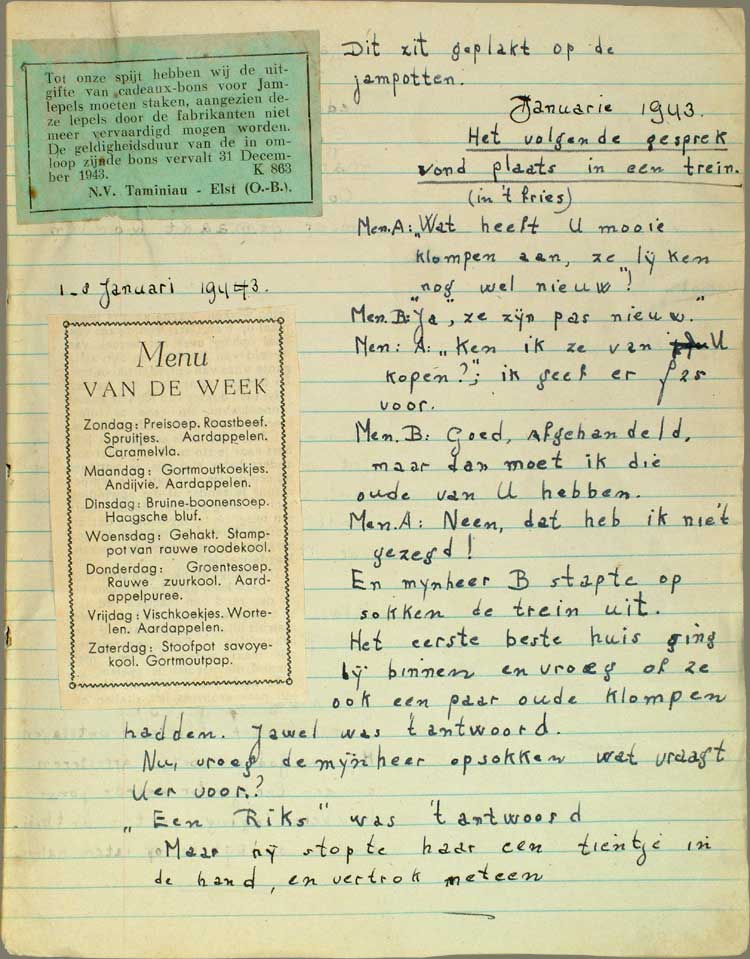 Tot onze spijt hebben wij de uit-
gifte van cadeaux-bons voor Jam-
lepels moeten staken, aangezien de-
ze lepels door de fabrikanten niet
meer vervaardigd mogen worden.
De geldigheidsduur van de in om-
loop zijnde bons vervalt 31 Decem-
ber 1943. K 863
N.V. Taminiau - Elst (O.-B.).
Dit zit geplakt op de
jampotten.
Januarie 1943.
Het volgende gesprek
vond plaats in een trein.
(in 't fries)
Men.A: „Wat heeft U mooie
klompen aan, ze lijken
nog wel nieuw"!
Men. B: "Ja", ze zijn pas nieuw."
Men: A: „Ken ik ze van U
kopen?"; ik geef er ƒ25
voor.
Men. B: Goed, Afgehandeld,
maar dan moet ik die
oude van U hebben.
Men.A: Neen, dat heb ik niet
gezegd!
En mynheer B stapte op
sokken de trein uit.
Het eerste beste huis ging
hij binnen en vroeg of ze
ook een paar oude klompen
hadden. Jawel was 't antwoord.
Nu, vroeg de mijnheer op sokken wat vraagt
U er voor.?
„Een Riks" was 't antwoord
Maar hij stopte haar een tientje in
de hand, en vertrok meteen
1-8 Januari 1943.
Menu
VAN DE WEEK
Zondag: Preisoep. Roastbeef.
Spruitjes. Aardappelen.
Caramelvla.
Maandag: Gortmoutkoekjes.
Andijvie. Aardappelen.
Dinsdag: Bruine-boonensoep.
Haagsche bluf.
Woensdag: Gehakt. Stamp-
pot van rauwe roodekool.
Donderdag: Groentesoep.
Rauwe zuurkool. Aard-
appelpuree.
Vrijdag: Vischkoekjes. Worte-
len. Aardappelen.
Zaterdag: Stoofpot savoye-
kool. Gortmoutpap.